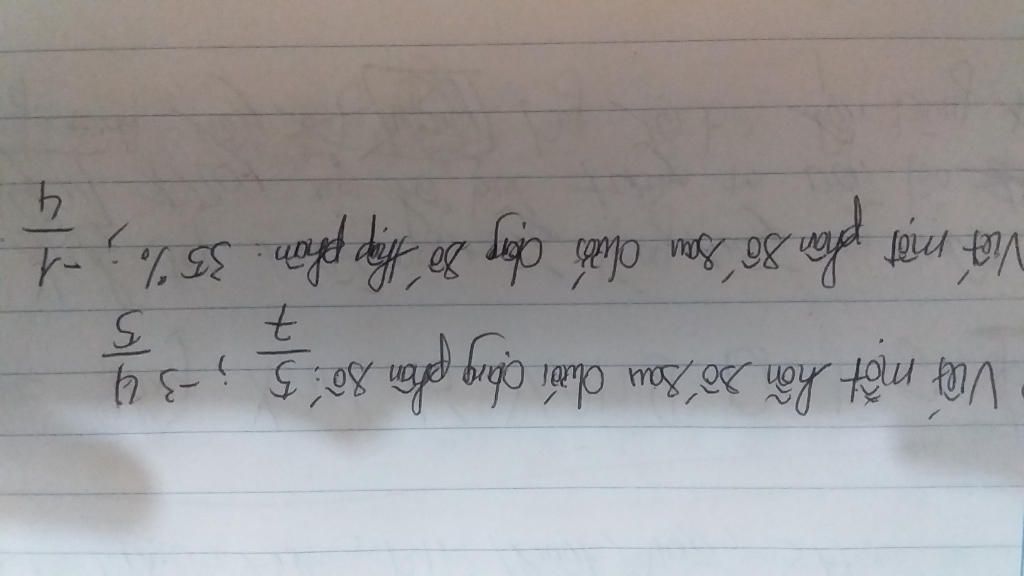 Viết một hỗn số sau dưới dạng phân số: 5/7 ; -3 4/5
Viết một phân số sau dưới dạng số thập phân: 35% ; -1/4